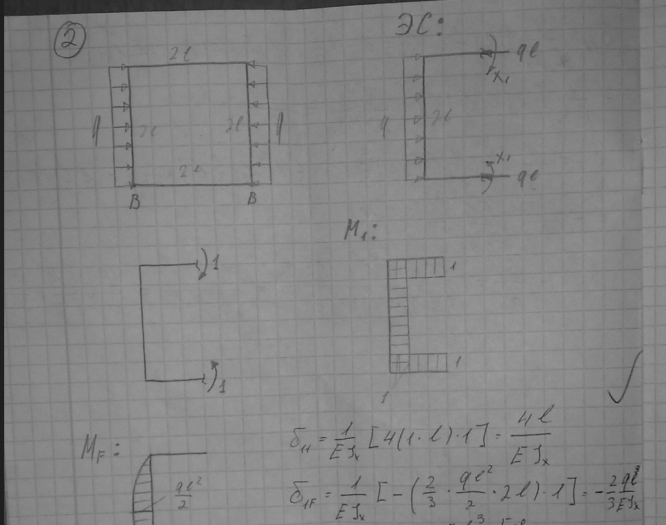 2
ЭС:
2l
ql
x₁
q
2l
2l
q
q
2l
2l
x₁
ql
B
B
M₁:
1
1
1
1
1
M_F:
ql²/2
δ₁₁ = 1/EJₓ [4(1·l)·1] = 4l/EJₓ
δ₁F = 1/EJₓ [-(2/3 · ql²/2 · 2l)·1] = -2ql³/3EJₓ